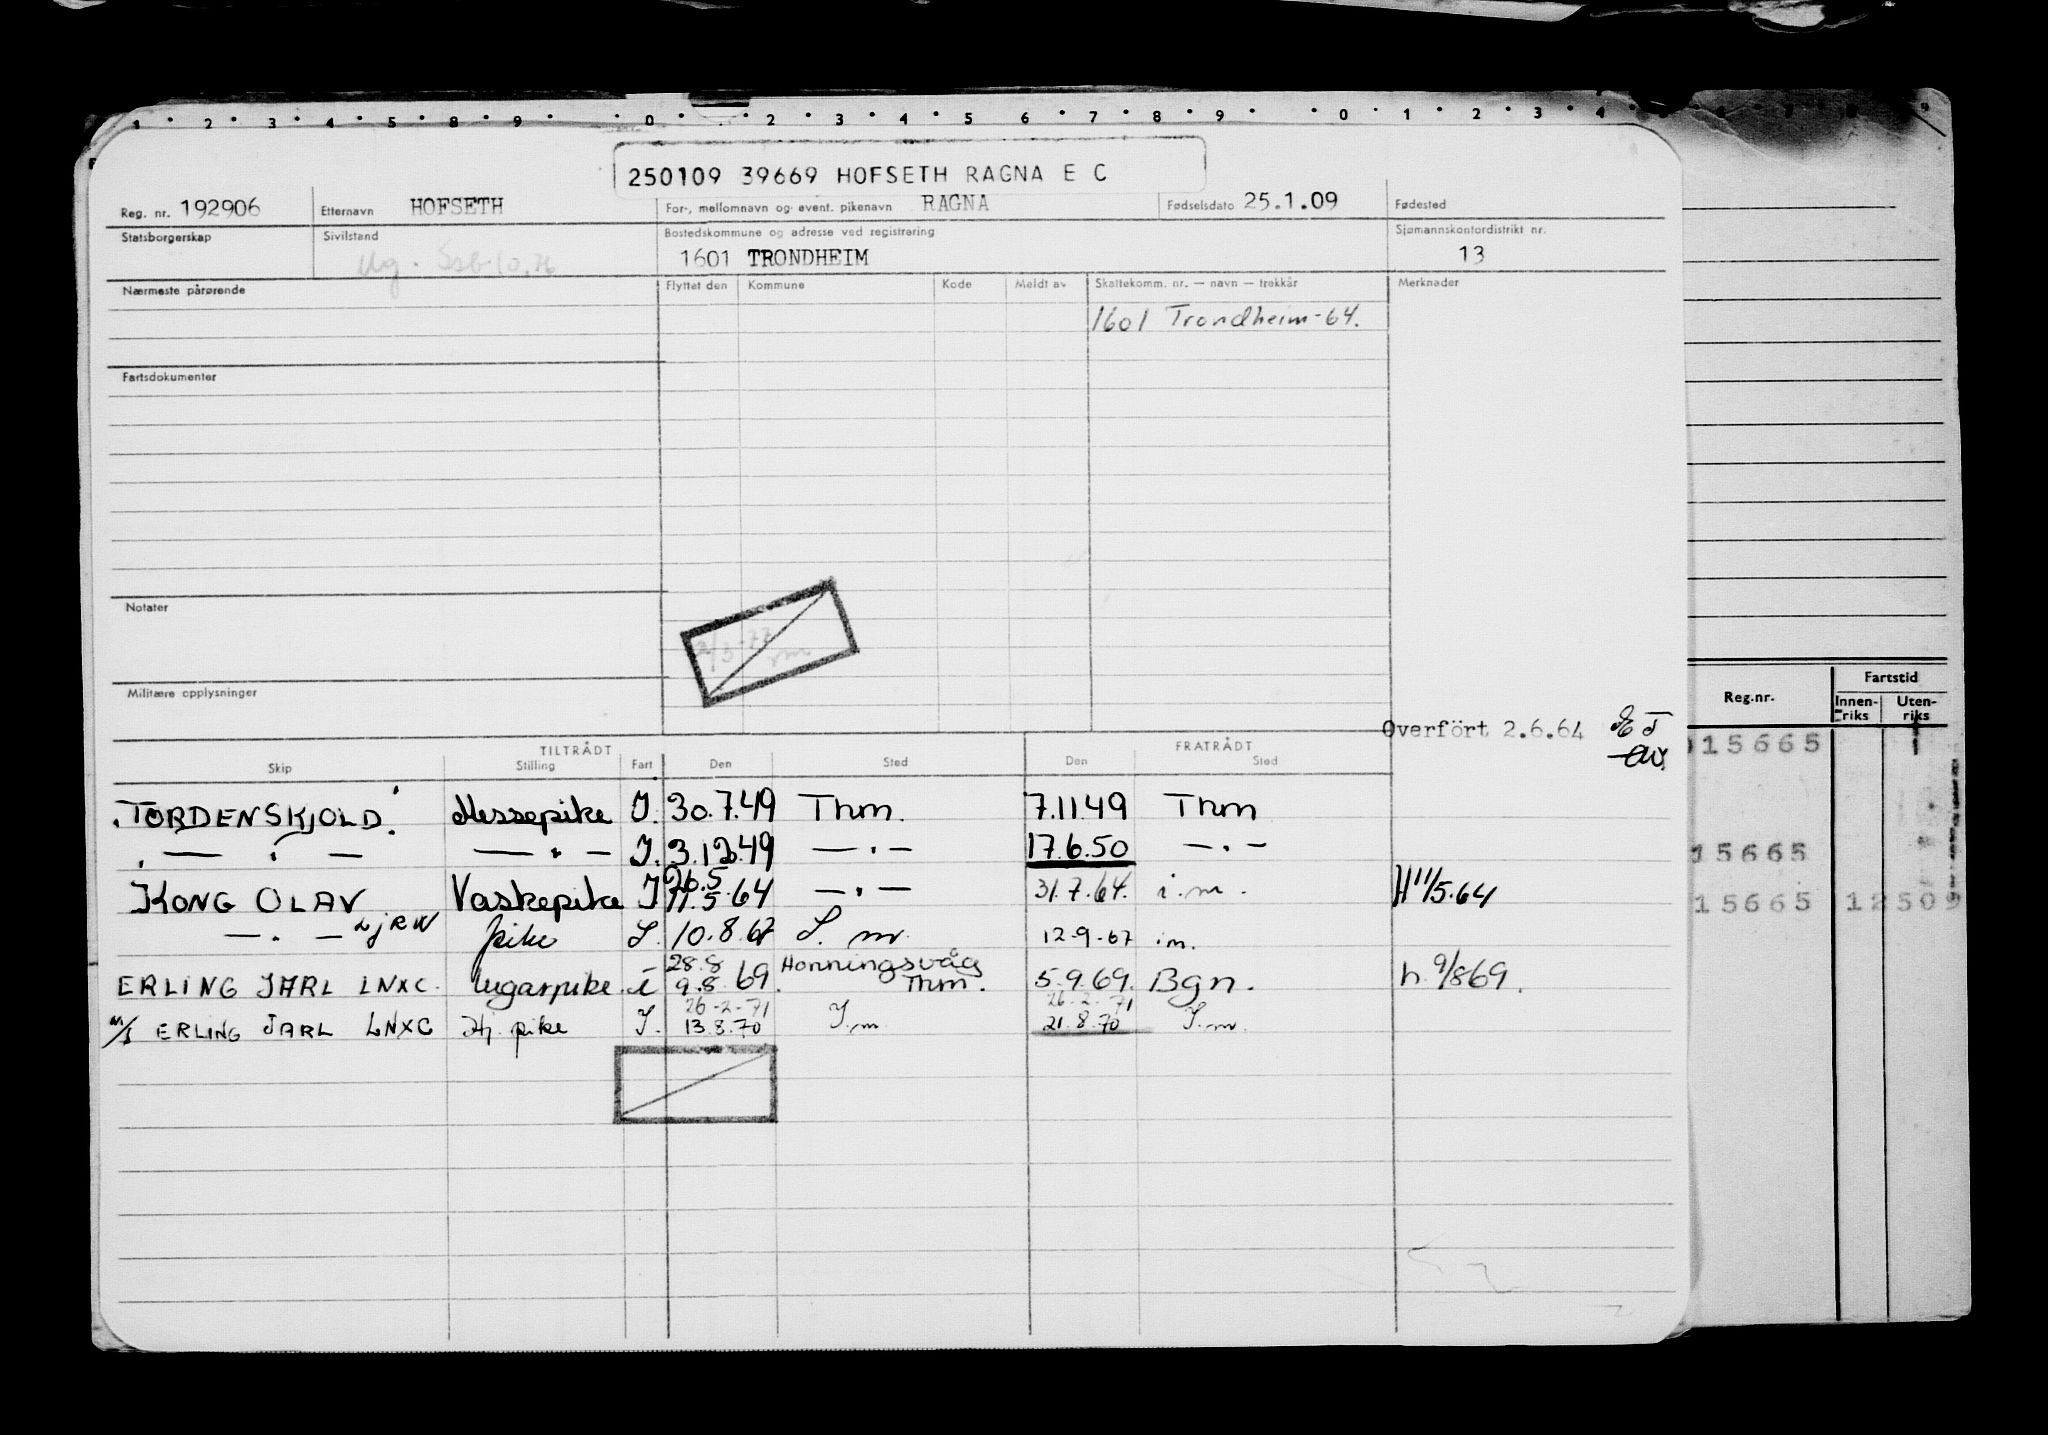 1 2 3 4 5 8 9 0 2 3 4 5 6 7 8 9 0 1 2 3 4
250109 39669 HOFSETH RAGNA E C
Reg. nr. 192906 Etternavn HOFSETH For-, mellomnavn og event. pikenavn RAGNA Fødselsdato 25.1.09 Fødested
Statsborgerskap Sivilstand Bostedskommune og adresse ved registrering Sjømannskontordistrikt nr.
Ug. 1601 TRONDHEIM 13
Nærmeste pårørende Flyttet den Kommune Kode Meldt av Skattekomm. nr. — navn — trekkår Merknader
1601 Trondheim-64.
Fartsdokumenter
Notater
Militære opplysninger
Reg.nr. Fartstid
Innenriks Utenriks
Overført 2.6.64
15665
TILTRÅDT FRATRÅDT
Skip Stilling Fart Den Sted Den Sted
TORDENSKJOLD. Messepike I. 30.7.49 Thm. 7.11.49 Thm
— " — — " — I. 3.12.49 — " — 17.6.50 — " —
15665
26.5
KONG OLAV Vaskepike I 11.5.64 — " — 31.7.64. i.m. H 11/5.64
15665 12509
— " — LJRW pike I. 10.8.67 I. m. 12-9-67 im.
28.8 Honningsvåg
ERLING JARL LNXC. lugarpike. i 9.8.69. Thm. 5.9.69. Bgn. h. 9/869.
26-2-71 26-2-71
M/S ERLING JARL LNXC Hj. pike I. 13.8.70 I.m 21.8.70 I.m.